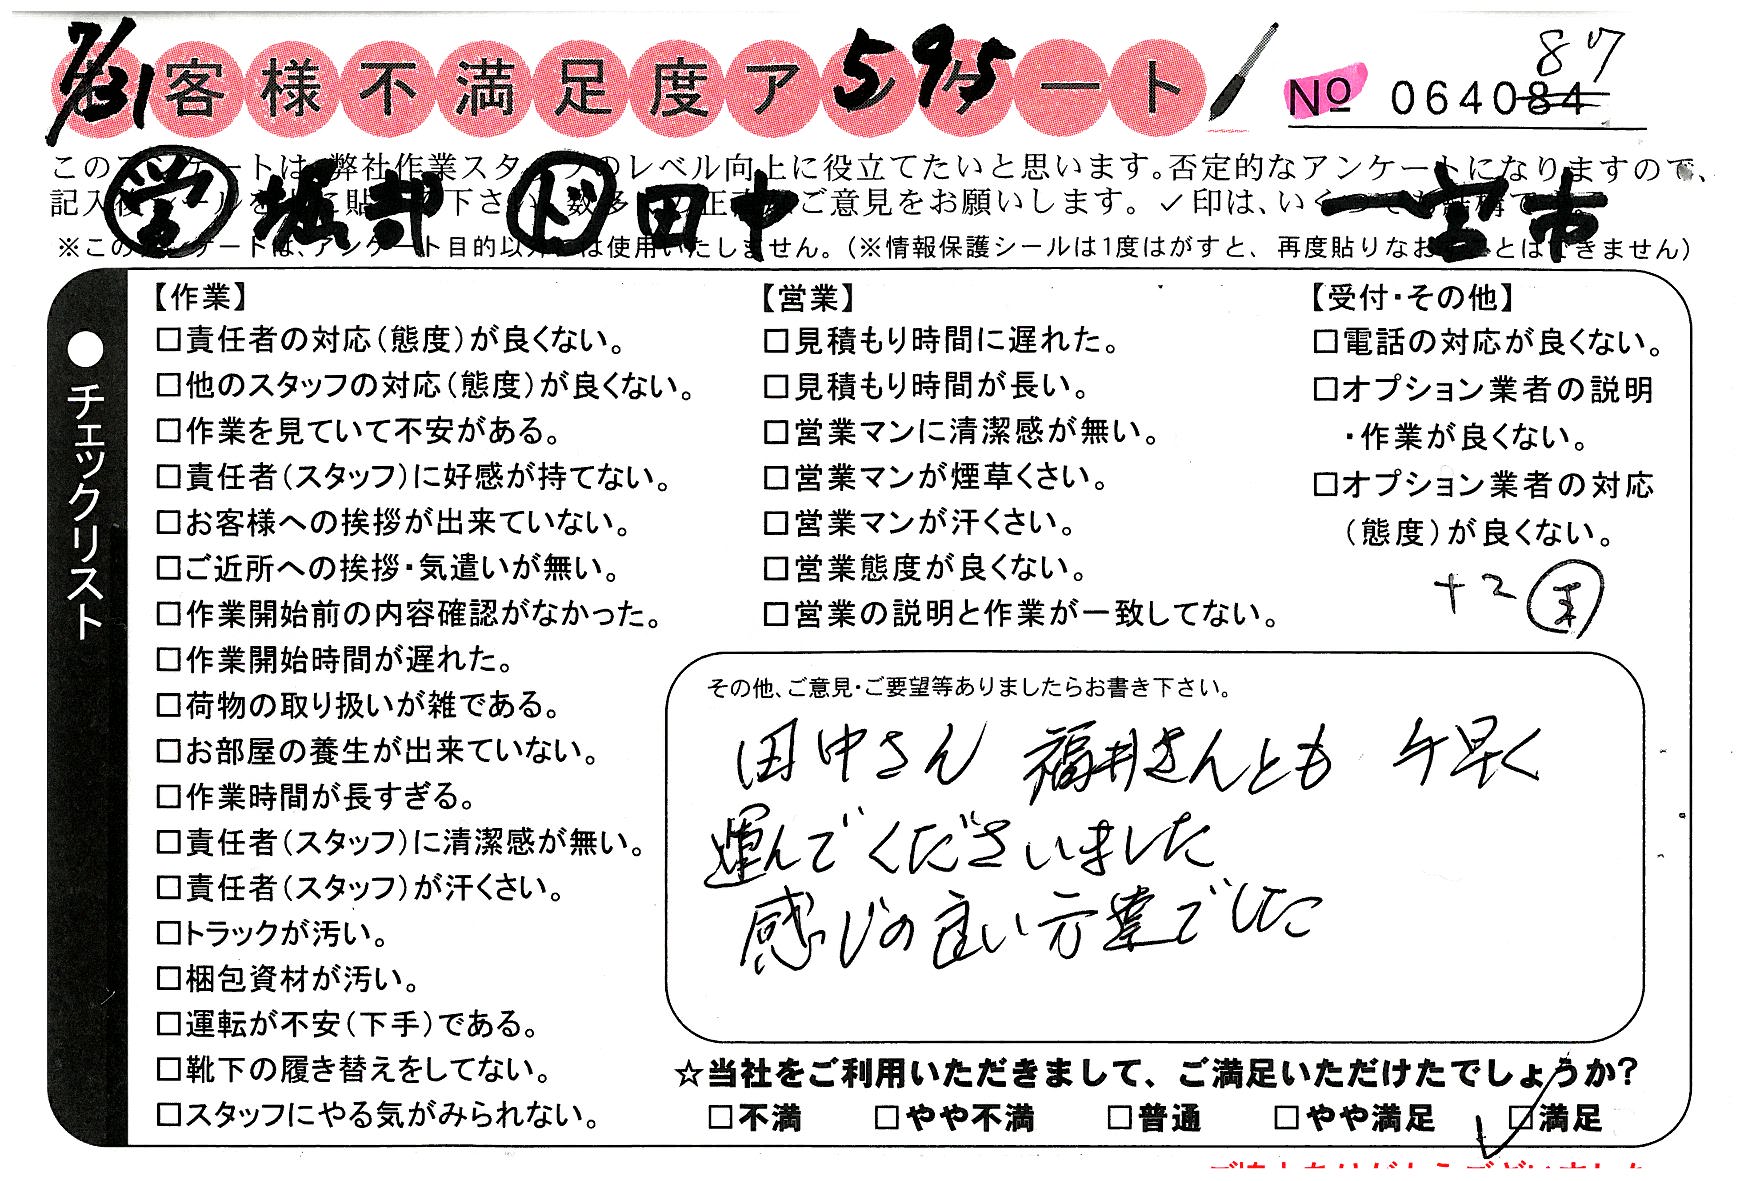 7/31 お客様不満足度アンケート 595
No 064084 87
このアンケートは、弊社作業スタッフのレベル向上に役立てたいと思います。否定的なアンケートになりますので、
記入後シールを 貼 下さい。数多 の正直なご意見をお願いします。✓印は、いくつでも結構です。
営 堀部 ド 田中 一宮市
※このアンケートは、アンケート目的以外には使用いたしません。(※情報保護シールは1度はがすと、再度貼りなおすことはできません)
●チェックリスト
【作業】
□責任者の対応(態度)が良くない。
□他のスタッフの対応(態度)が良くない。
□作業を見ていて不安がある。
□責任者(スタッフ)に好感が持てない。
□お客様への挨拶が出来ていない。
□ご近所への挨拶・気遣いが無い。
□作業開始前の内容確認がなかった。
□作業開始時間が遅れた。
□荷物の取り扱いが雑である。
□お部屋の養生が出来ていない。
□作業時間が長すぎる。
□責任者(スタッフ)に清潔感が無い。
□責任者(スタッフ)が汗くさい。
□トラックが汚い。
□梱包資材が汚い。
□運転が不安(下手)である。
□靴下の履き替えをしてない。
□スタッフにやる気がみられない。
【営業】
□見積もり時間に遅れた。
□見積もり時間が長い。
□営業マンに清潔感が無い。
□営業マンが煙草くさい。
□営業マンが汗くさい。
□営業態度が良くない。
□営業の説明と作業が一致してない。
【受付・その他】
□電話の対応が良くない。
□オプション業者の説明
・作業が良くない。
□オプション業者の対応
(態度)が良くない。
+2
その他、ご意見・ご要望等ありましたらお書き下さい。
田中さん 福井さんとも 手早く
運んでくださいました
感じの良い方業でした
☆当社をご利用いただきまして、ご満足いただけたでしょうか?
□不満 □やや不満 □普通 □やや満足 ✓□満足